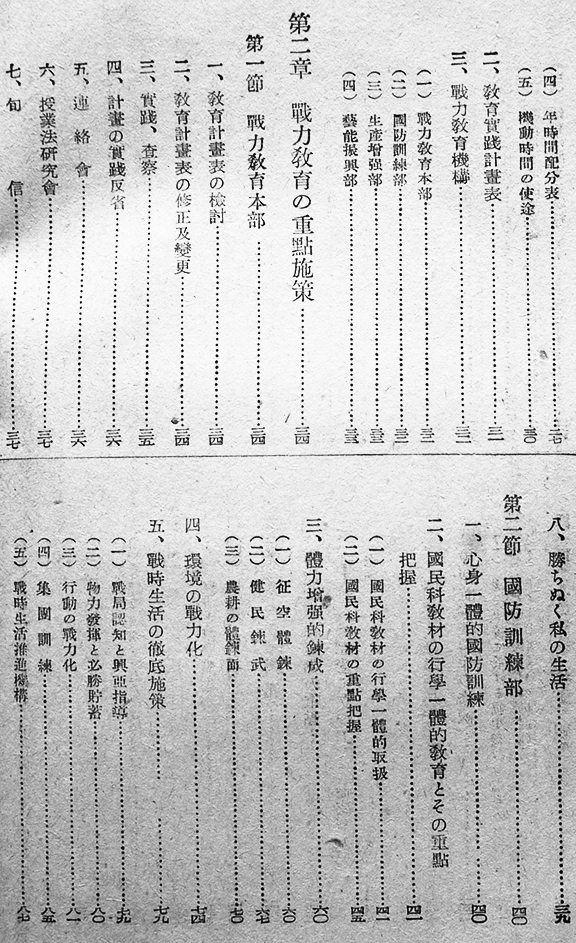 (四) 年時間配分表……三〇
(五) 機動時間の使途……三〇
二、敎育實踐計畫表……三一
三、戰力敎育機構……三二
(一) 戰力敎育本部……三二
(二) 國防訓練部……三二
(三) 生産增强部……三三
(四) 藝能振興部……三三
第二章 戰力敎育の重點施策……三四
第一節 戰力敎育本部……三四
一、敎育計畫表の檢討……三四
二、敎育計畫表の修正及變更……三四
三、實踐、査察……三五
四、計畫の實踐反省……三六
五、連絡會……三六
六、授業法硏究會……三七
七、旬信……三七
八、勝ちぬく私の生活……三九
第二節 國防訓練部……四〇
一、心身一體的國防訓練……四〇
二、國民科敎材の行學一體的敎育とその重點
把握……四一
(一) 國民科敎材の行學一體的取扱……四一
(二) 國民科敎材の重點把握……四五
三、體力增强的鍊成……六〇
(一) 征空體鍊……六〇
(二) 健民鍊武……六七
(三) 農耕の體鍊面……七〇
四、環境の戰力化……七四
五、戰時生活の徹底施策……七九
(一) 戰局認知と興亞指導……七九
(二) 物力發揮と必勝貯蓄……八〇
(三) 行動の戰力化……八一
(四) 集團訓練……八五
(五) 戰時生活推進機構……八七